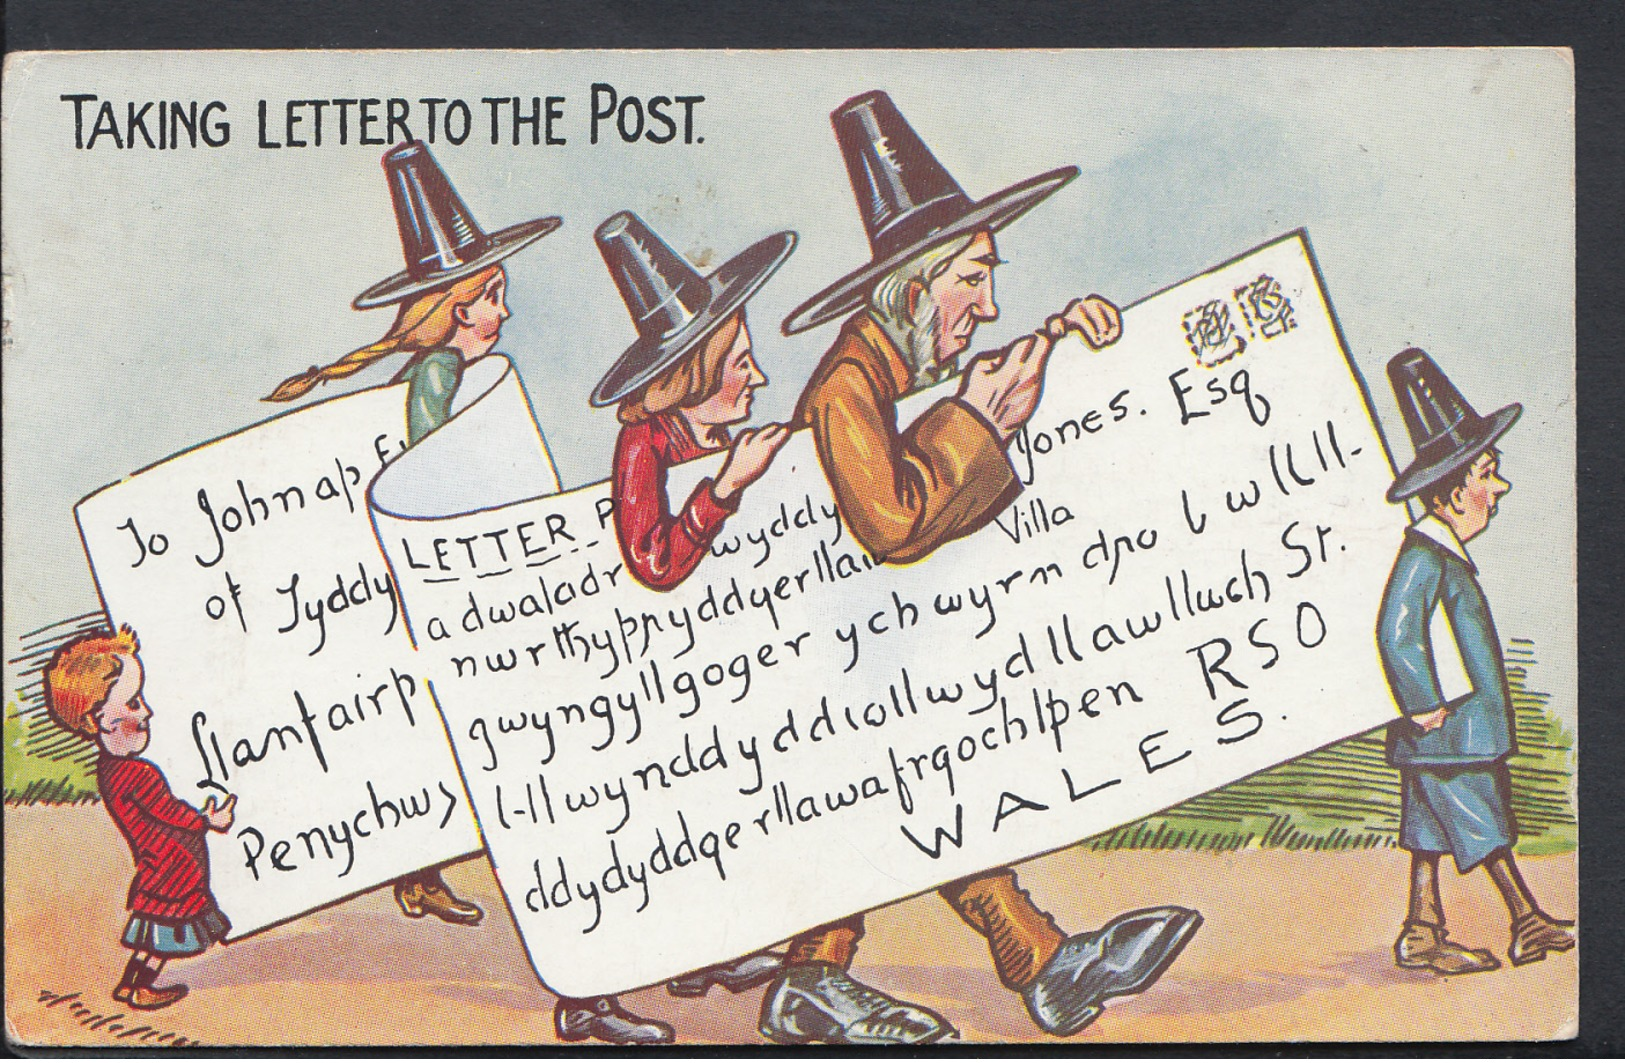 TAKING LETTER TO THE POST.
To John ap E
of Tyddy
Llanfairp
Penychw
LETTER P
adwaladr wyddy Jones. Esq
nwrthyppyddgerllan Villa
gwyngyllgogerychwyrndro bwllll-
l-llwynddyddiollwydllawllwch St.
ddydyddgerllawafrgochlpen RSO
WALES.